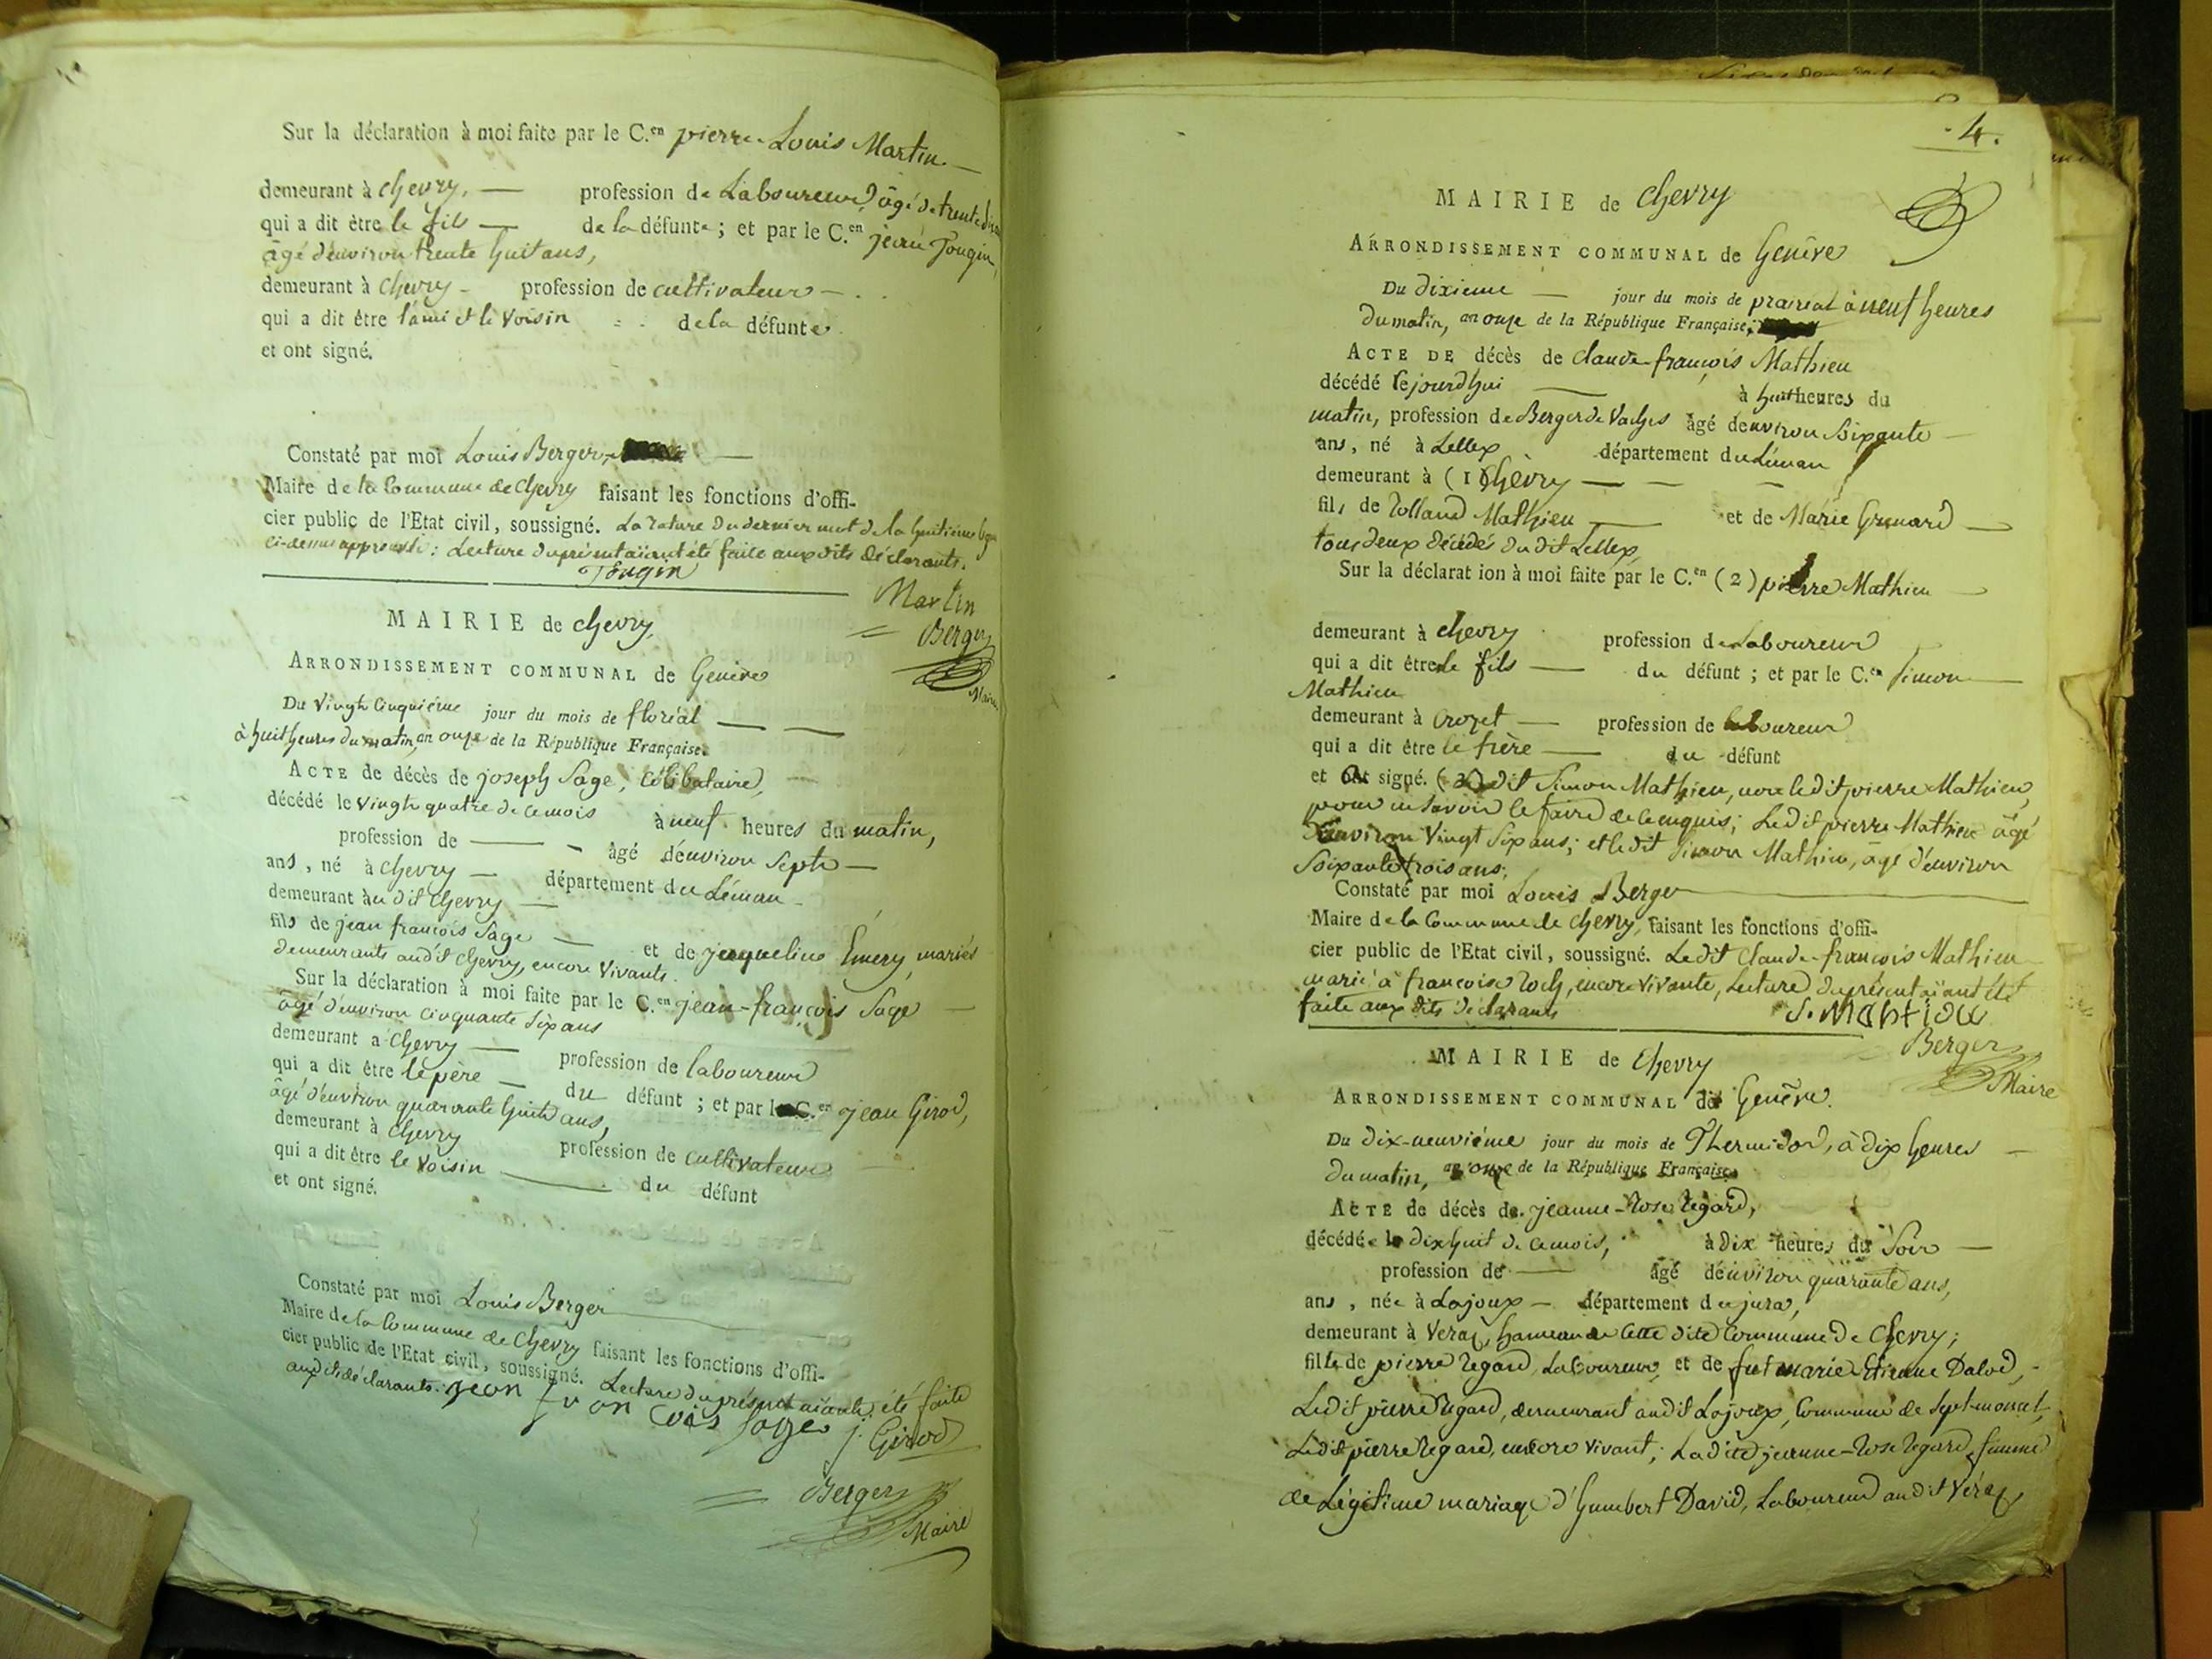 Sur la déclaration à moi faite par le C.en pierre Louis Martin
demeurant à chevry, profession de Laboureur, âgé de trente
qui a dit être le fils de la défunte ; et par le C.en jean Tougin,
âgé d'environ trente huit ans,
demeurant à Chevry profession de cultivateur
qui a dit être l'ami et le voisin de la défunte
et ont signé.
Constaté par moi Louis Berger,
Maire de la Commune de Chevry faisant les fonctions d'offi-
cier public de l'Etat civil, soussigné. La rature du dernier mot de la huitième ligne
ci-dessus approuvée : Lecture du présent aïant été faite aux dits déclarants.
Tougin
Martin
Berger
Maire
MAIRIE de chevry,
ARRONDISSEMENT COMMUNAL de Genève
Du vingt cinquième jour du mois de floréal
à huit heures du matin, an onze de la République Française.
ACTE de décès de joseph Sage, Célibataire,
décédé le vingt quatre de ce mois à neuf heures du matin,
profession de âgé d'environ Sept
ans, né à chevry département du Léman
demeurant au dit chevry
fils de jean françois Sage et de jaqueline Emery, mariés
demeurants audit chevry, encore vivants.
Sur la déclaration à moi faite par le C.en jean-françois Sage
âgé d'environ cinquante six ans
demeurant à Chevry profession de laboureur
qui a dit être le père du défunt ; et par le C.en jean Girod,
âgé d'environ quarante huit ans,
demeurant à chevry profession de cultivateur
qui a dit être le voisin du défunt
et ont signé.
Constaté par moi Louis Berger
Maire de la Commune de Chevry faisant les fonctions d'offi-
cier public de l'Etat civil, soussigné. Lecture du présent aïant été faite
aux dits déclarants. jean fran cois sage j. Girod
Berger
Maire
4.
MAIRIE de chevry
ARRONDISSEMENT COMMUNAL de Genève
Du dixieme jour du mois de prairial à neuf heures
du matin, an onze de la République Française,
ACTE DE décès de claude-françois Mathieu
décédé cejourd'hui à huit heures du
matin, profession de Berger de Vaches âgé d'environ soixante
ans, né à Lellex département du Léman
demeurant à (1) Chevry
fils de Rolland Mathieu et de Marie Grenard
tous deux décédés du dit Lellex,
Sur la déclaration à moi faite par le C.en (2) pierre Mathieu
demeurant à chevry profession de Laboureur
qui a dit être le fils du défunt ; et par le C.en Simon
Mathieu
demeurant à Crozet profession de laboureur
qui a dit être le frère du défunt
et ont signé. dit Simon Mathieu, non ledit pierre Mathieu,
pour ne savoir le faire de ce enquis ; Ledit pierre Mathieu âgé
d'environ vingt six ans ; et le dit Simon Mathieu, âgé d'environ
soixante trois ans.
Constaté par moi Louis Berger
Maire de la Commune de chevry, faisant les fonctions d'offi-
cier public de l'Etat civil, soussigné. Ledit Claude-françois Mathieu
marié à françoise Roch, encore vivante, Lecture du présent aïant été
faite aux dits déclarants
Berger
Maire
MAIRIE de Chevry
ARRONDISSEMENT COMMUNAL de Genève.
Du dix-neuvième jour du mois de Thermidor, à dix heures
du matin, an onze de la République Française,
ACTE de décès de jeanne-Rose Regard,
décédée le dix huit de ce mois, à dix heures du Soir
profession de âgé d'environ quarante ans,
ans, née à Lajoux département du jura,
demeurant à Veraz, hameau de cette dite Commune de Chevry ;
fille de pierre Regard, Laboureur, et de fut marie Etienne Dalod,
Ledit pierre Regard, demeurant audit Lajoux, Commune de Sept-moncel,
Ledit pierre Regard, encore vivant ; La dite jeanne-Rose Regard, femme
de Légitime mariage d'humbert David, Laboureur audit Véraz